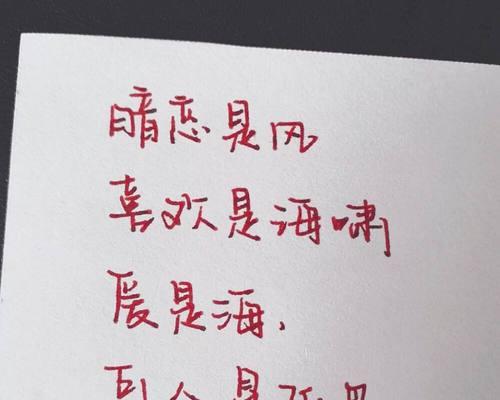 暗恋是风
喜欢是海啸
爱是海.
是